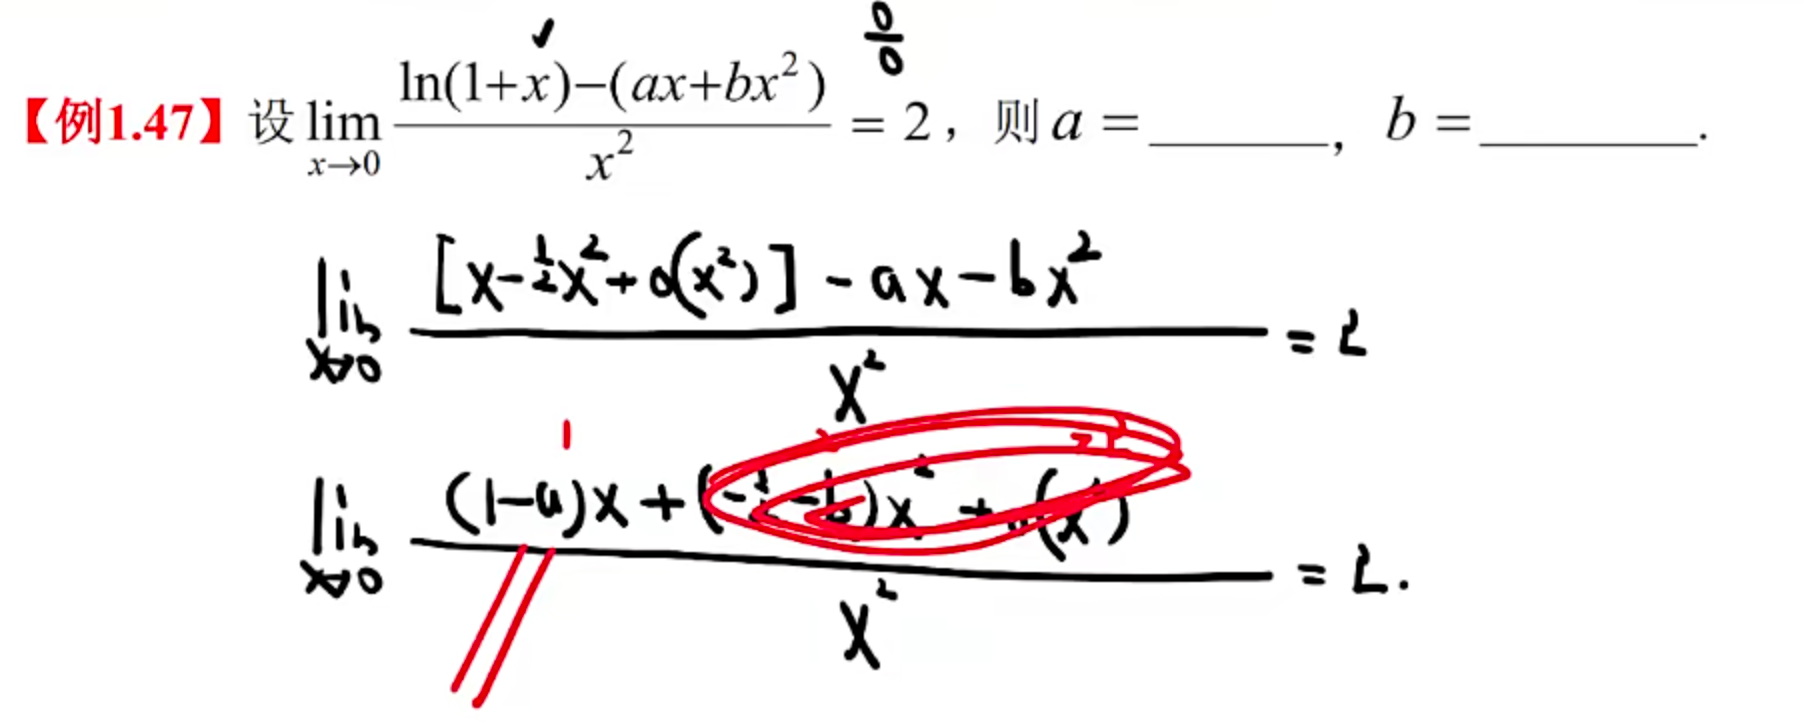 0/0
【例1.47】设 lim_{x→0} \frac{ln(1+x)−(ax+bx²)}{x²} = 2，则 a = ______，b = ______.
lim_{x→0} \frac{[x−\frac{1}{2}x²+o(x²)]−ax−bx²}{x²} = 2
lim_{x→0} \frac{(1−a)x+(−\frac{1}{2}−b)x²+o(x²)}{x²} = 2.